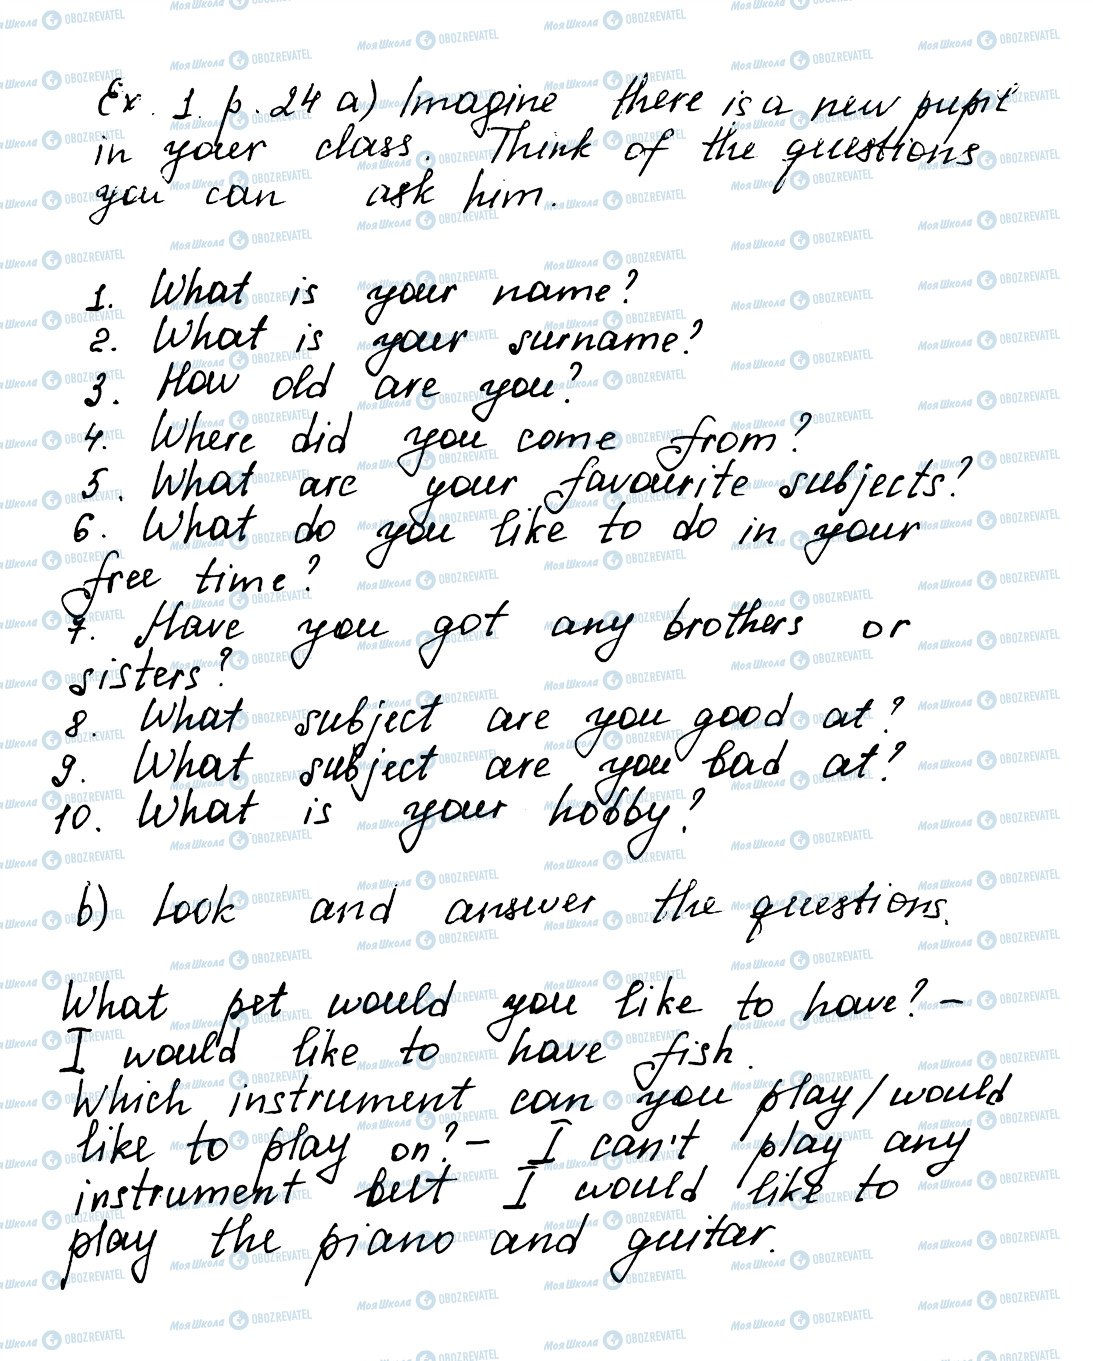 Ex. 1. p. 24 a) Imagine there is a new pupil
in your class. Think of the questions
you can ask him.
1. What is your name?
2. What is your surname?
3. How old are you?
4. Where did you come from?
5. What are your favourite subjects?
6. What do you like to do in your
free time?
7. Have you got any brothers or
sisters?
8. What subject are you good at?
9. What subject are you bad at?
10. What is your hobby?
b) Look and answer the questions.
What pet would you like to have? -
I would like to have fish.
Which instrument can you play/would
like to play on? - I can't play any
instrument but I would like to
play the piano and guitar.
Моя Школа OBOZREVATEL